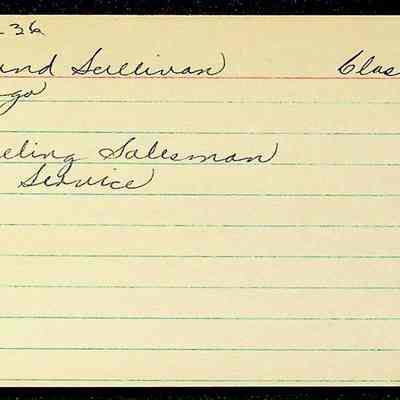 36
and Sullivan Clas
go
eling Salesman
Service